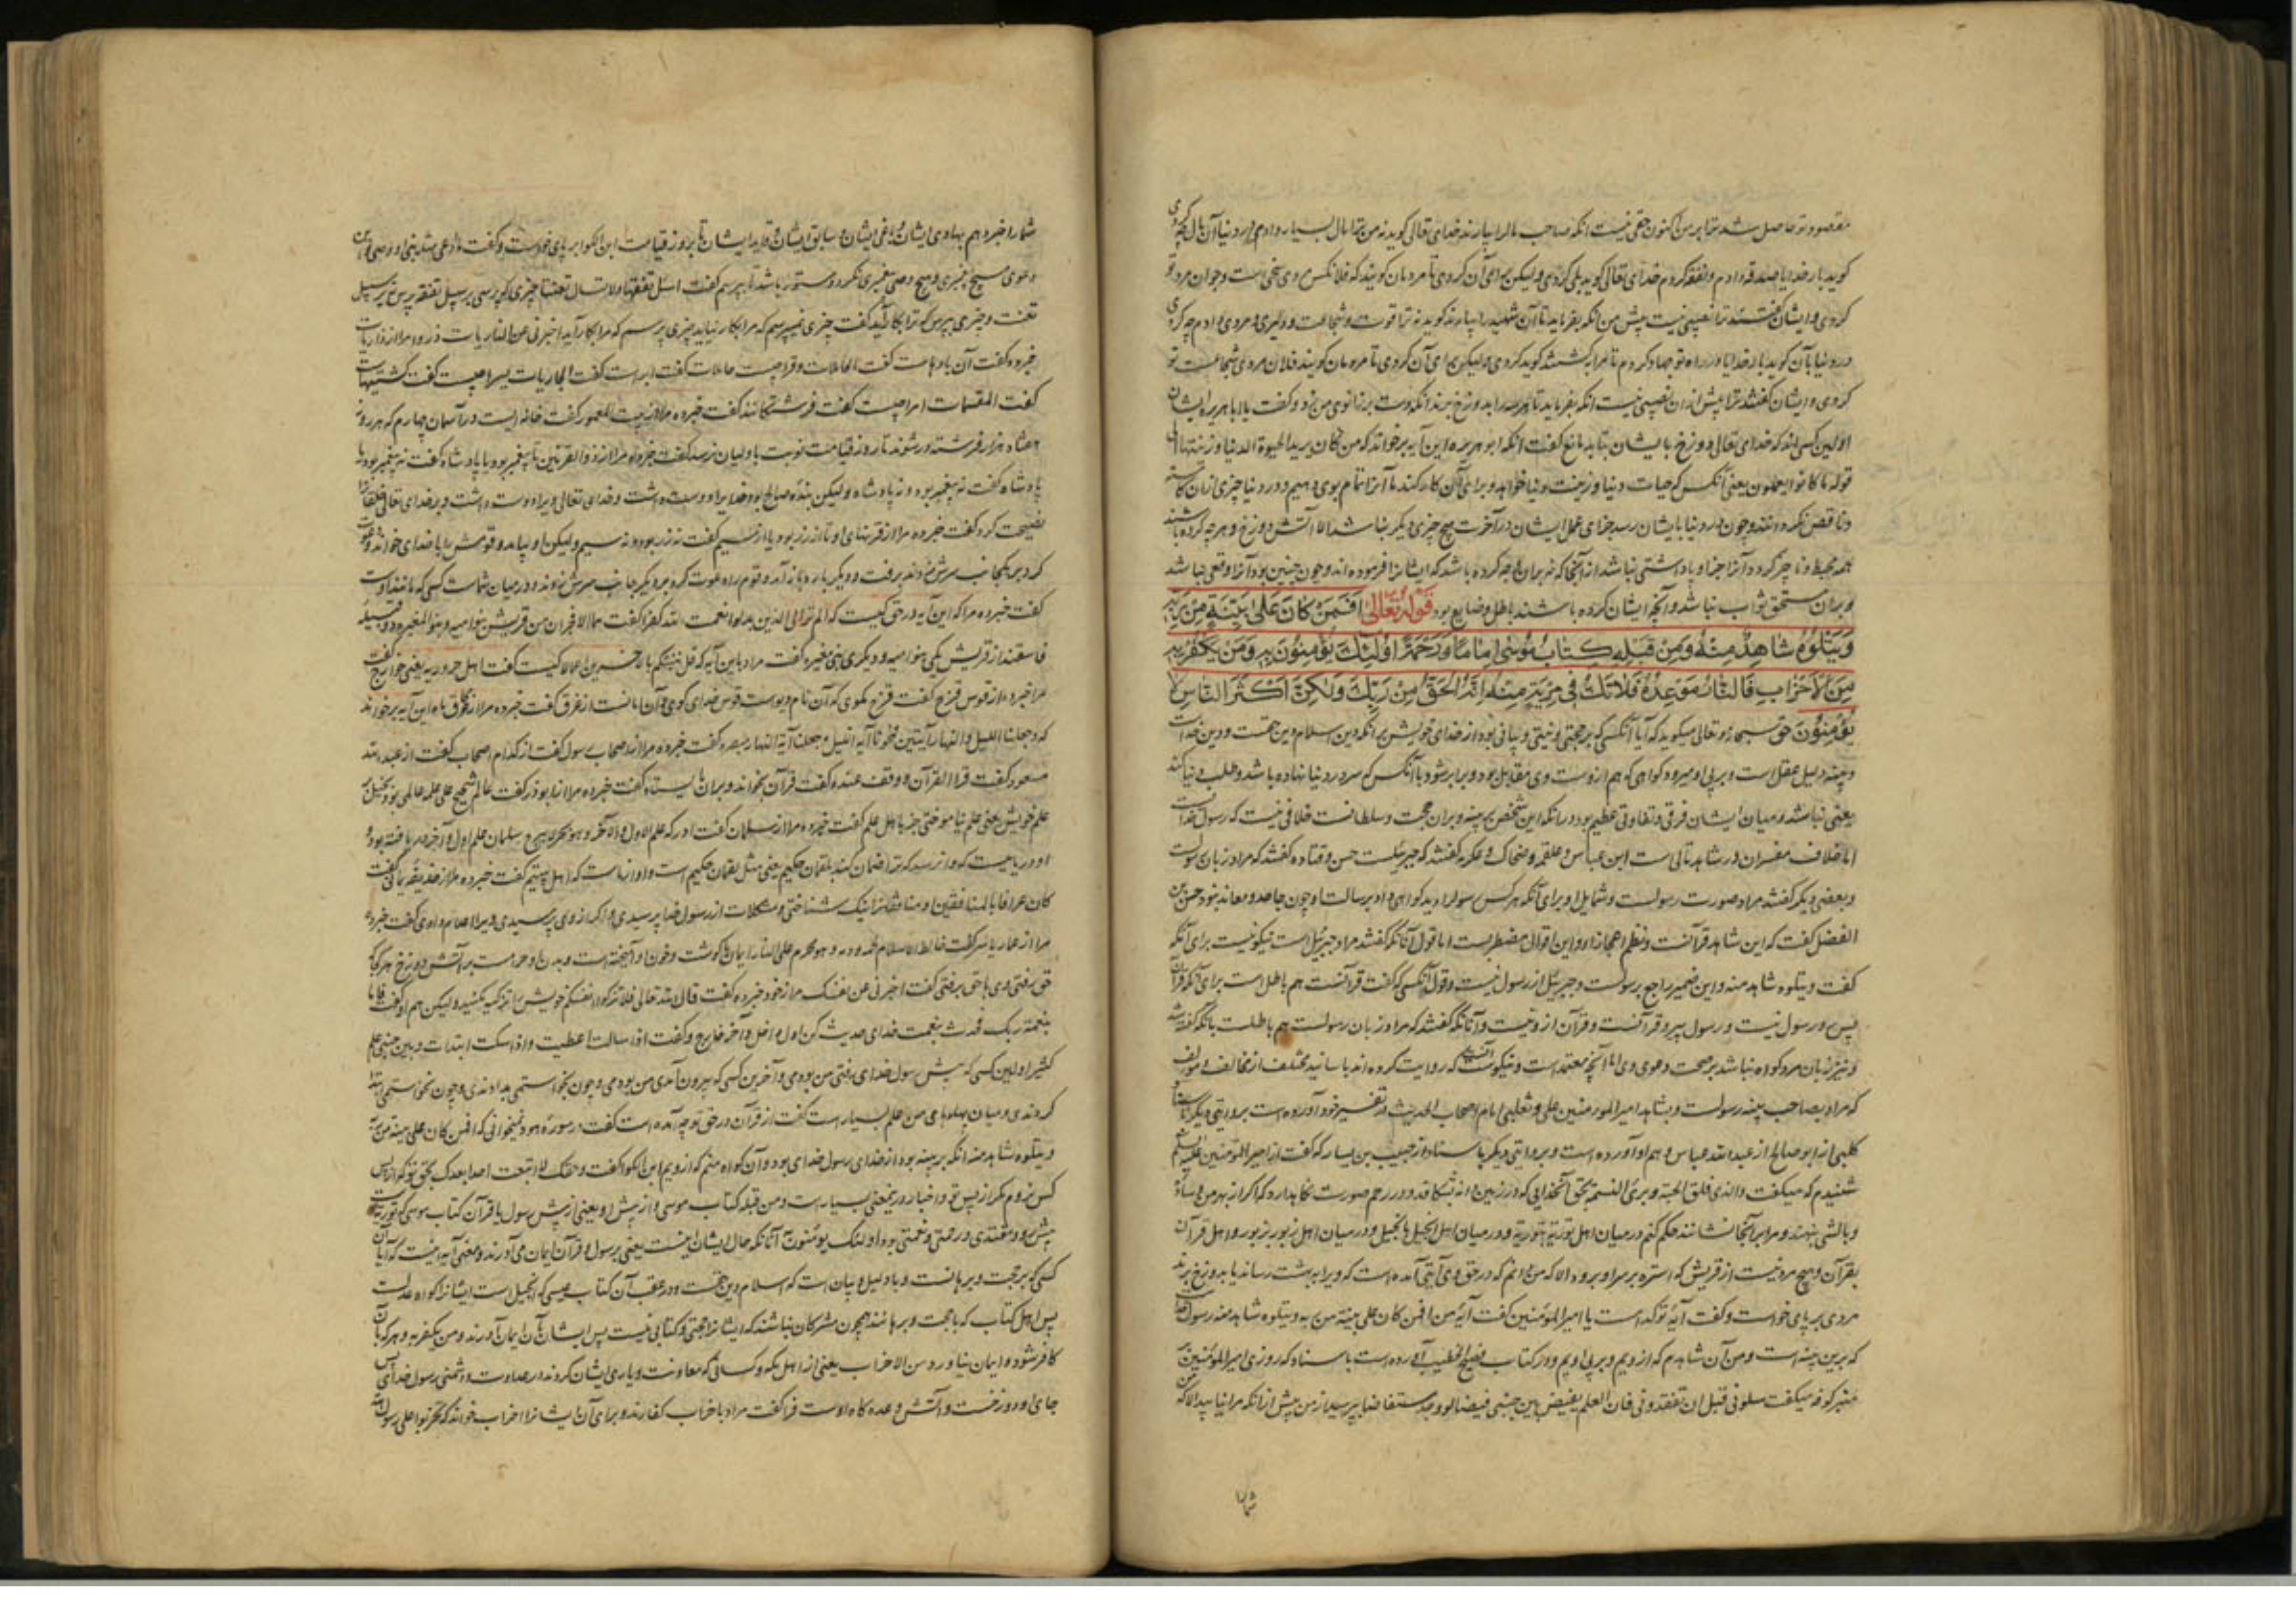 مقصود تو حاصل شد ترا بر من اکنون حقی نیست انکه صاحب مال را بیارند خدای تعالی کوید نه من ترا مال بسیار دادم در دنیا آن مال چه کردی
کوید بار خدایا صدقه دادم و نفقه کردم خدای تعالی کوید بلی کردی ولیکن برای آن کردی تا مردمان کویند که فلانکس مردی سخی است و جوان مرد تو
کردی و ایشان کفتند ترا نصیبی نیست پیش من انکه بفرماید تا آن شهید را بیارند کوید نه ترا قوت و شجاعت و دلیری و مردی دادم چه کردی
در دنیا بآن کوید بار خدایا در راه تو جهاد کردم تا مرا بکشتند کوید کردی ولیکن برای آن کردی تا مردمان کویند فلان مردی شجاعست تو
کردی و ایشان کفتند ترا پیش از ان نصیبی نیست انکه بفرماید تا هر سه را بدوزخ برند انکه دست بر زانوی من زد و کفت یا ابا هریره ایشان
اولین کسی اند که خدای تعالی دوزخ بایشان بتابد مانع کفت انکه ابو هریره این آیه بر خواند که من کان یرید الحیوة الدنیا و زینتها الی
قوله ما کانوا یعملون یعنی آنکس که حیات دنیا و زینت دنیا خواهد و برای آن کار کند ما آنرا تمام بوی دهیم و در دنیا چیزی از ان کاسته
و ناقص نکرده اند و چون در دنیا بایشان رسد جزای عمل ایشان در آخرت هیچ چیزی دیکر نباشد الا آتش دوزخ و هر چه کرده باشند
همه محبط و ناچیز کردد آنرا جزا و پاداشتی نباشد از آنجا که نه بران وجه کرده باشد که ایشانرا فرموده اند و چون چنین بود آنرا وقعی نباشد
و بران مستحق ثواب نباشد و آنچه ایشان کرده باشند باطل و ضایع بود قوله تعالی افمن کان علی بینة من ربه
ویتلوه شاهد منه ومن قبله کتاب موسی اماما ورحمة اولئک یؤمنون به ومن یکفر به
من الاحزاب فالنار موعده فلاتک فی مریة منه انه الحق من ربک ولکن اکثر الناس لا
یؤمنون حق سبحانه و تعالی میکوید که آیا آنکسی که بر حجتی و بینتی و بیانی بود از خدای خویش بر انکه دین اسلام دین حقست و دین خداست
و بینه دلیل عقل است و بر پی او میرود کواهی که هم ازوست وی مقابل بود و برابر شود با آنکس که سر در دنیا نهاده باشد و طلب دنیا کند
یعنی نباشد و میان ایشان فرقی و تفاوتی عظیم بود در انکه این شخص بر بینه و بران حجت و سلطانست خلافی نیست که رسول خداست
اما خلاف مفسران در شاهد تالی است ابن عباس و علقمه و ضحاک و عکرمه کفتند که جبرئیلست حسن و قتاده کفتند که مراد زبان رسولست
و بعضی دیکر کفتند مراد صورت رسولست و شمایل او برای آنکه هر کس رسول را دید کواهی داد برسالت او چون جاحد و معاند نبود حسین بن
الفضل کفت که این شاهد قرآنست و نظم و اعجاز او و این اقوال مضطربست اما قول آنانکه کفتند مراد جبرئیل است نیکو نیست برای آنکه
کفت و یتلوه شاهد منه و این ضمیر راجع برسولست و جبرئیل از رسول نیست و قول آنکسی که کفت قرآنست هم باطل است برای آنکه قرآن
پس رو رسول نیست و رسول پیرو قرآنست و قرآن ازو نیست و آنانکه کفتند که مراد زبان رسولست هم باطلست بانکه کفته شد
و نیز زبان مرد کواه نباشد بر صحت دعوی وی اما آنچه معتمد است و نیکوست آنست که روایت کرده اند باسانید مختلف از مخالف و مؤلف
که مراد بصاحب بینه رسولست و بشاهد امیر المؤمنین علی و ثعلبی امام اصحاب الحدیث در تفسیر خود آورده است بروایتی دیکر باسناد
کلبی از ابو صالح از عبد الله عباس و هم او آورده است و بروایتی دیکر باسناد از حبیب بن یسار که کفت از امیر المؤمنین علیه السلم
شنیدم که میکفت والذی فلق الحبة و برئ النسمة بحق آنخدایی که در زمین دانه شکافد و در رحم صورت نکاهدارد که اکر از بهر من وساده
و بالشی بنهند و مرا بر آنجا نشانند حکم کنم در میان اهل توریة بتوریة و در میان اهل انجیل بانجیل و در میان اهل زبور بزبور و اهل قرآن
بقرآن و هیچ مرد نیست از قریش که استره بر سر او برود الا که من دانم که در حق وی آیتی آمده است که ویرا ببهشت رساند یا بدوزخ برند
مردی بر پای خواست و کفت آیة تو کدامست یا امیر المؤمنین کفت آیة من افمن کان علی بینة من ربه و یتلوه شاهد منه رسول خدا
که برین بینه است و من آن شاهدم که ازویم و بر پی اویم و در کتاب فصیح الخطیب آورده است باسناد که روزی امیر المؤمنین بر
منبر کوفه میکفت سلونی قبل ان تفقدونی فان العلم یفیض بین جنبی فیضا لو وجد مستفاضا بپرسید از من پیش از انکه مرا نیابید الا که
شما را
شما را خبر دهم بهادی ایشان و باغی ایشان و سابق ایشان و قاید ایشان تا بروز قیامت ابن الکوا بر پای خواست و کفت
دعوی هیچ پیغمبری و هیچ وصی پیغمبری نکرد دستور باشد تا بپرسم کفت اسئل تفقها ولا تسال تعنتا چیزی که پرسی بر سبیل تفقه پرس نه بر سبیل
تعنت و چیزی بپرس که ترا بکار آید کفت چیزی نمیپرسم که مرا بکار نیاید چیزی پرسم که مرا بکار آید اخبرنی عن الذاریات ذروا مرا از ذاریات
خبر ده کفت آن بادهاست کفت الحاملات وقرا چیست حاملات کفت ابر است کفت الجاریات یسرا چیست کفت کشتیهاست
کفت المقسمات امرا چیست کفت فرشتکانند کفت خبر ده مرا از بیت المعمور کفت خانه ایست در آسمان چهارم که هر روز
هفتاد هزار فرشته در شوند تا روز قیامت نوبت باولیان نرسد کفت خبر ده مرا از ذو القرنین تا پیغمبر بود یا پادشاه کفت نه پیغمبر بود نه
پادشاه کفت نه پیغمبر بود و نه پادشاه ولیکن بنده صالح بود خدایرا دوست داشت و خدای تعالی ویرا دوست داشت و بر خدای تعالی خلق را
نصیحت کرد کفت خبر ده مرا از قرنهای او تا از زر بود یا از سیم کفت نه زر بود و نه سیم ولیکن او بیامد و قومش را با خدای خواند و دعوت
کرد بر یکجانب سرش زدند برفت و دیکر باره باز آمد و قوم را دعوت کرد بر دیکر جانب سرش زدند و در میان شماست کسی که مانند اوست
کفت خبر ده مرا که این آیه در حق کیست که الم تر الی الذین بدلوا نعمت الله کفرا کفت هما الافجران من قریش بنو امیه و بنو المغیره دو قبیله
فاسقند از قریش یکی بنو امیه و دیکری بنی مغیره کفت مراد باین آیه که قل هل ننبئکم بالاخسرین اعمالا کیست کفت اهل حروریه یعنی خوارج کفت
مرا خبر ده از قوس قزح کفت قزح مکوی که آن نام دیوست قوس خدای کوی و آن امانست از غرق کفت خبر ده مرا از محاق ماه این آیه بر خواند
که و جعلنا اللیل والنهار آیتین فمحونا آیة اللیل وجعلنا آیة النهار مبصره کفت خبر ده مرا از اصحاب رسول کفت از کدام اصحاب کفت از عبد الله
مسعود کفت قرا القرآن و وقف عنده کفت قرآن بخواند و بران بایستاد کفت خبر ده مرا از ابوذر کفت عالم شحیح علی علمه عالمی بود بخیل بر
علم خویش یعنی علم نیاموختی جز باهل علم کفت خبر ده مرا از سلمان کفت ادرک علم الاول والآخر وهو بحر لا ینزح سلمان علم اول و آخر دریافته بود و
او دریاییست که کفت خبر ده مرا از حذیفه یمانی کفت
کان عرافا بالمنافقین او منافقانرا نیک شناختی و مشکلات از رسول خدا پرسیدی و اکر از وی پرسیدی ویرا اعلام دادی کفت خبر ده
مرا از عمار یاسر کفت خالط الاسلام لحمه و دمه وهو محرم علی النار ایمان با کوشت و خون او آمیخته است و بدن او حرامست بر آتش دوزخ هر کجا
حق رفتی وی با حق برفتی کفت اخبرنی عن نفسک مرا از خود خبر ده کفت قال الله تعالی فلا تزکوا انفسکم خویش را تزکیه مکنید ولیکن هم او کفت فاما
بنعمة ربک فحدث بنعمت خدای حدیث کن اول داخل و آخر خارج و کفت اذا سالت اعطیت و اذا سکت ابتدات و بین جنبی علم
کثیر اولین کسی که پیش رسول خدای رفتی من بودمی و آخرین کسی که بیرون آمدی من بودمی و چون بخواستمی بدادندی و چون نخواستمی ابتدا
کردندی و میان پهلوهای من علم بسیار است کفت از قرآن در حق تو چه آمده است کفت در سوره هود نمیخوانی که افمن کان علی بینة من ربه
و یتلوه شاهد منه انکه بر بینه بود از خدای رسول خدای بود و آن کواه منم که ازویم ابن الکوا کفت وحقک لا اتبعت احدا بعدک بحق تو که از پس
کس نروم مکر از پس تو و اخبار درینمعنی بسیار است و من قبله کتاب موسی و از پیش او یعنی از پیش رسول یا قرآن کتاب موسی که توریتست
پیش رو و مقتدی و رحمتی و نعمتی بود اولئک یؤمنون به آنانکه حال ایشان اینست یعنی برسول و قرآن ایمان می آورند و معنی آیه اینست که آیا آن
کسی که بر حجت و برهانست و با دلیل و بیان است که اسلام دین حقست و در عقب آن کتاب عیسی که انجیل است ایشانرا کواه عدلست
پس اهل کتاب که با حجت و برهانند همچون مشرکان نباشند که ایشانرا حجتی و کتابی نیست پس ایشان بآن ایمان آورند و من یکفر به و هر که بآن
کافر شود و ایمان نیاورد من الاحزاب یعنی از اهل مکه و کسانی که معاونت و یاری ایشان کردند در عداوت و دشمنی رسول خدای پس
جای او دوزخست و آتش وعده کاه اوست فرا کفت مراد باحزاب کفارند و برای آن ایشانرا احزاب خواند که تحزبوا علی رسول الله